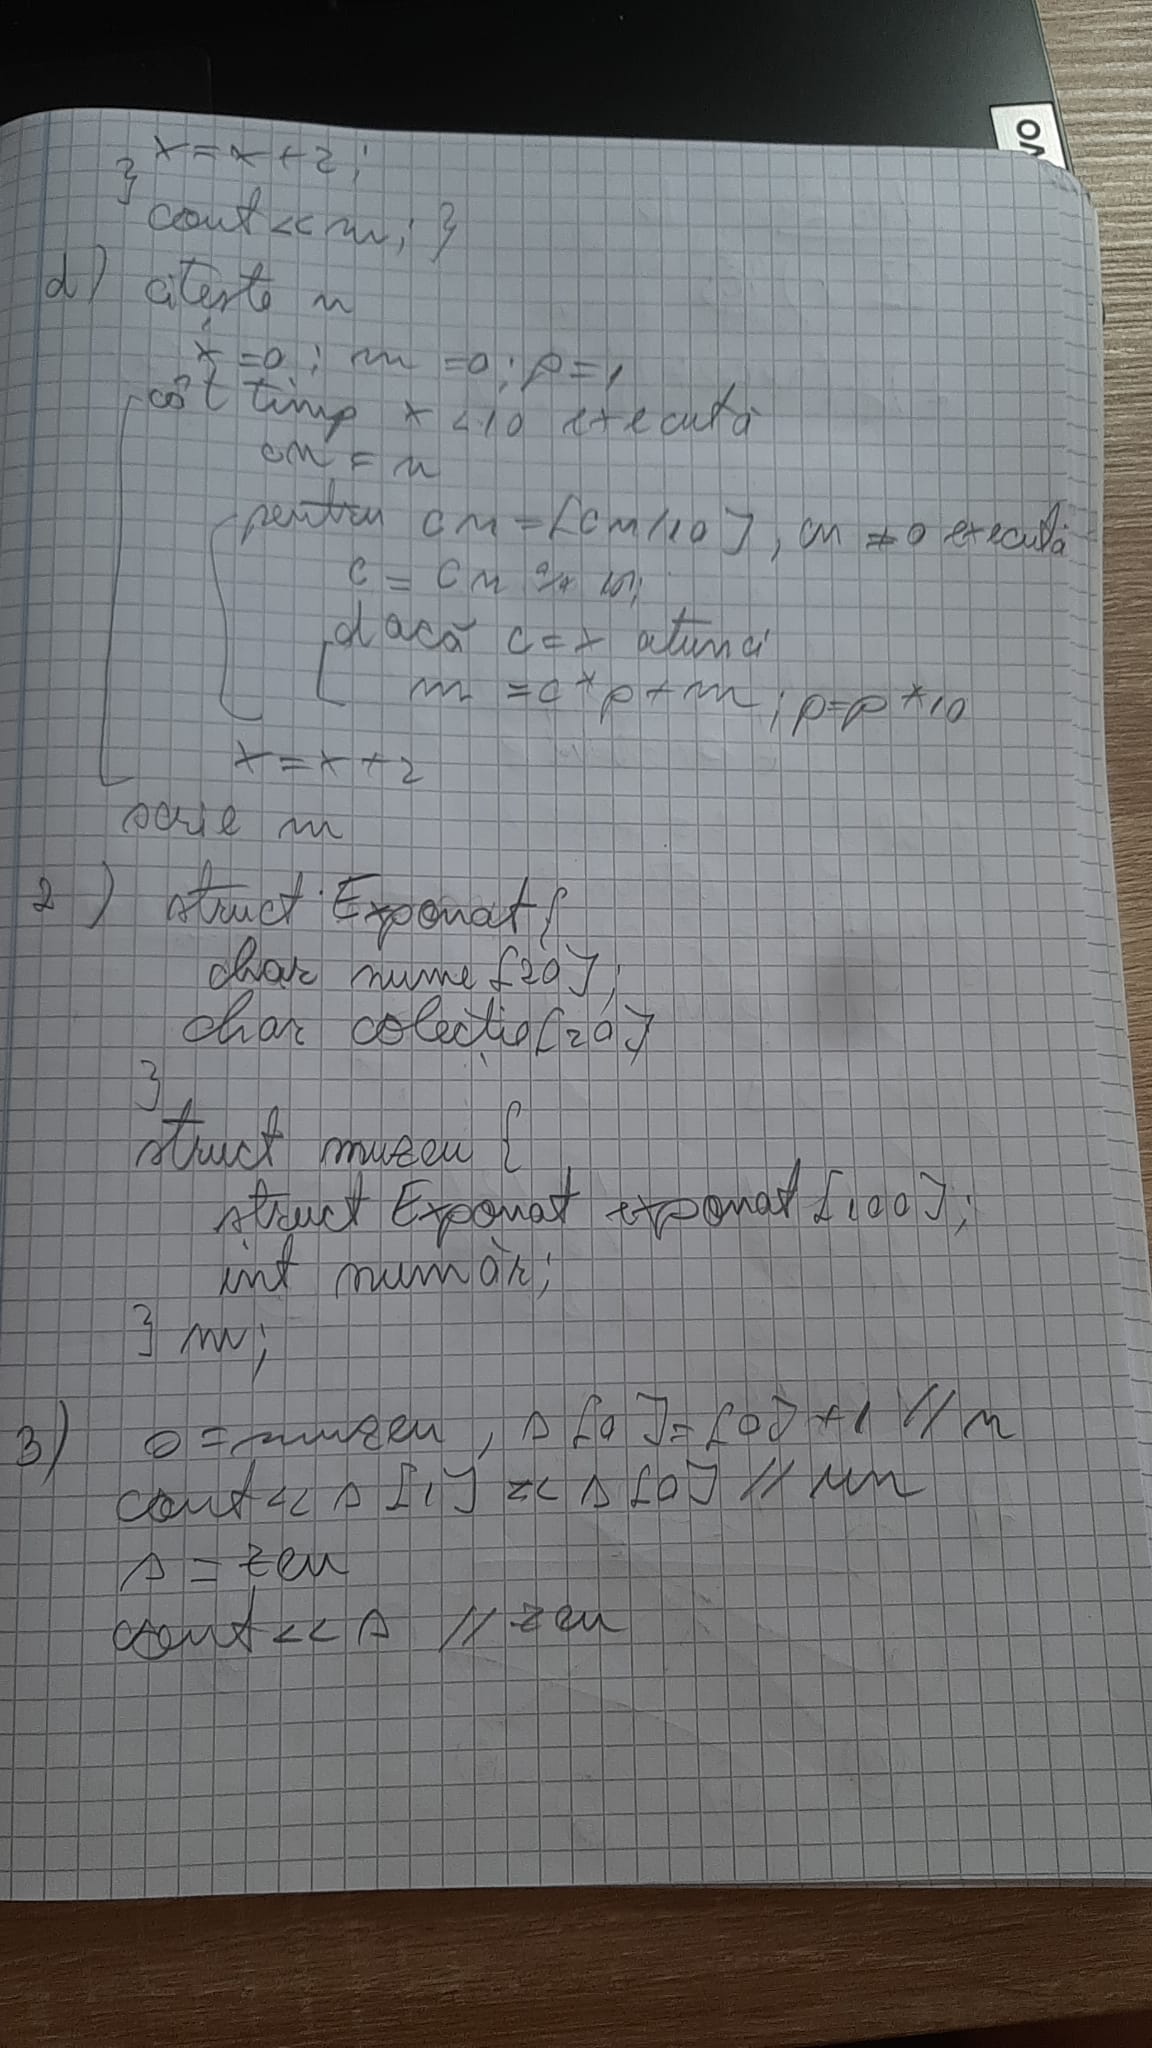 VO
x=x+2;
}
cout<<m; }
d) citește n
x=0; m=0; p=1
cât timp x<10 execută
cn = n
pentru cn=[cn/10], cn≠0 execută
c = cn % 10;
dacă c=x atunci
m =c*p+m; p=p*10
x=x+2
scrie m
2) struct Exponat{
char nume[20];
char colecție[20]
}
struct muzeu {
struct Exponat exponat[100];
int număr;
} m;
3) s=muzeu, s[0]=[0]+1 // n
cout<<s[1]<<s[0] // un
s = zeu
cout<<s // zeu